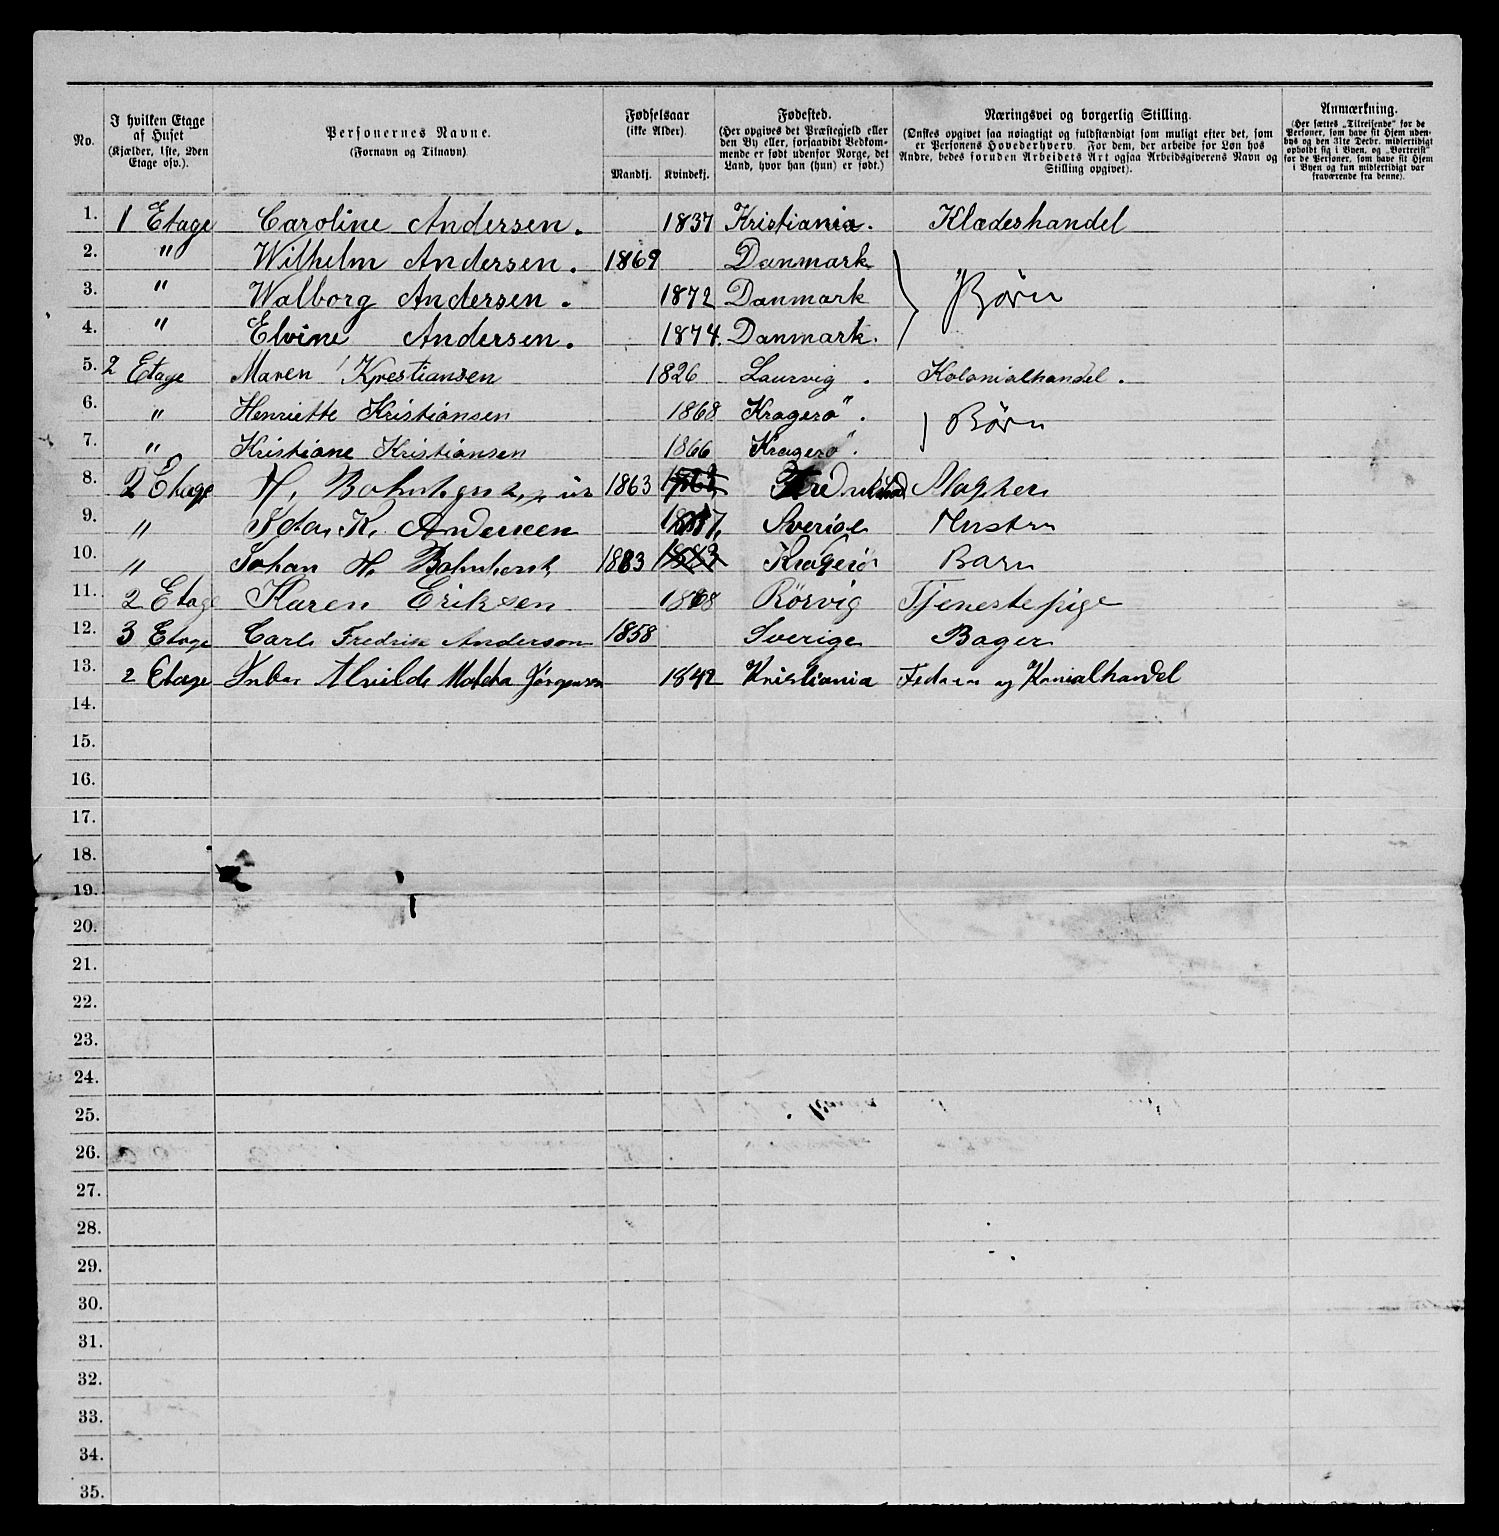 No.
I hvilken Etage
af Huset
(Kjælder, 1ste, 2den
Etage osv.).
Personernes Navne.
(Fornavn og Tilnavn)
Fødselsaar
(ikke Alder)
Mandkj. Kvindekj.
Fødested.
(Her opgives det Præstegjeld eller
den By eller, forsaavidt Vedkom-
mende er født udenfor Norge, det
Land, hvor han (hun) er født.)
Næringsvei og borgerlig Stilling.
(Ønskes opgivet saa nøiagtigt og fuldstændigt som muligt efter det, som
er Personens Hovederhverv. For dem, der arbeide for Løn hos
Andre, bedes foruden Arbeidets Art ogsaa Arbeidsgiverens Navn og
Stilling opgivet).
Anmærkning.
(Her sættes „Tilreisende“ for de
Personer, som have sit Hjem uden-
bys og den 31te Decbr. midlertidigt
opholdt sig i Byen, og „Bortreist“
for de Personer, som have sit Hjem
i Byen og kun midlertidigt var
fraværende fra denne).
1. 1 Etage Caroline Andersen. 1837 Kristiania. Klædeshandel
2. " Wilhelm Andersen. 1869 Danmark
3. " Walborg Andersen. 1872 Danmark Børn
4. " Elvine Andersen. 1874. Danmark.
5. 2 Etage Maren Krestiansen 1826 Laurvig. Kolonialhandel.
6. " Henriette Kristiansen 1868 Kragerø". Børn
7. " Kristiane Kristiansen 1866 Kragerø".
8. 2 Etage H. 1863
9. " Ida K. Andersen Sverige Hustru
10. " Johan H. 1883 1883 Kragerø Barn
11. 2 Etage Karen Eriksen 1868 Rörvig Tjenestepige
12. 3 Etage Carl Fredrik Anderson 1858 Sverige Bager
13. 2 Etage Alvilde Jørgensen 1842 Kristiania og
14.
15.
16.
17.
18.
19.
20.
21.
22.
23.
24.
25.
26.
27.
28.
29.
30.
31.
32.
33.
34.
35.